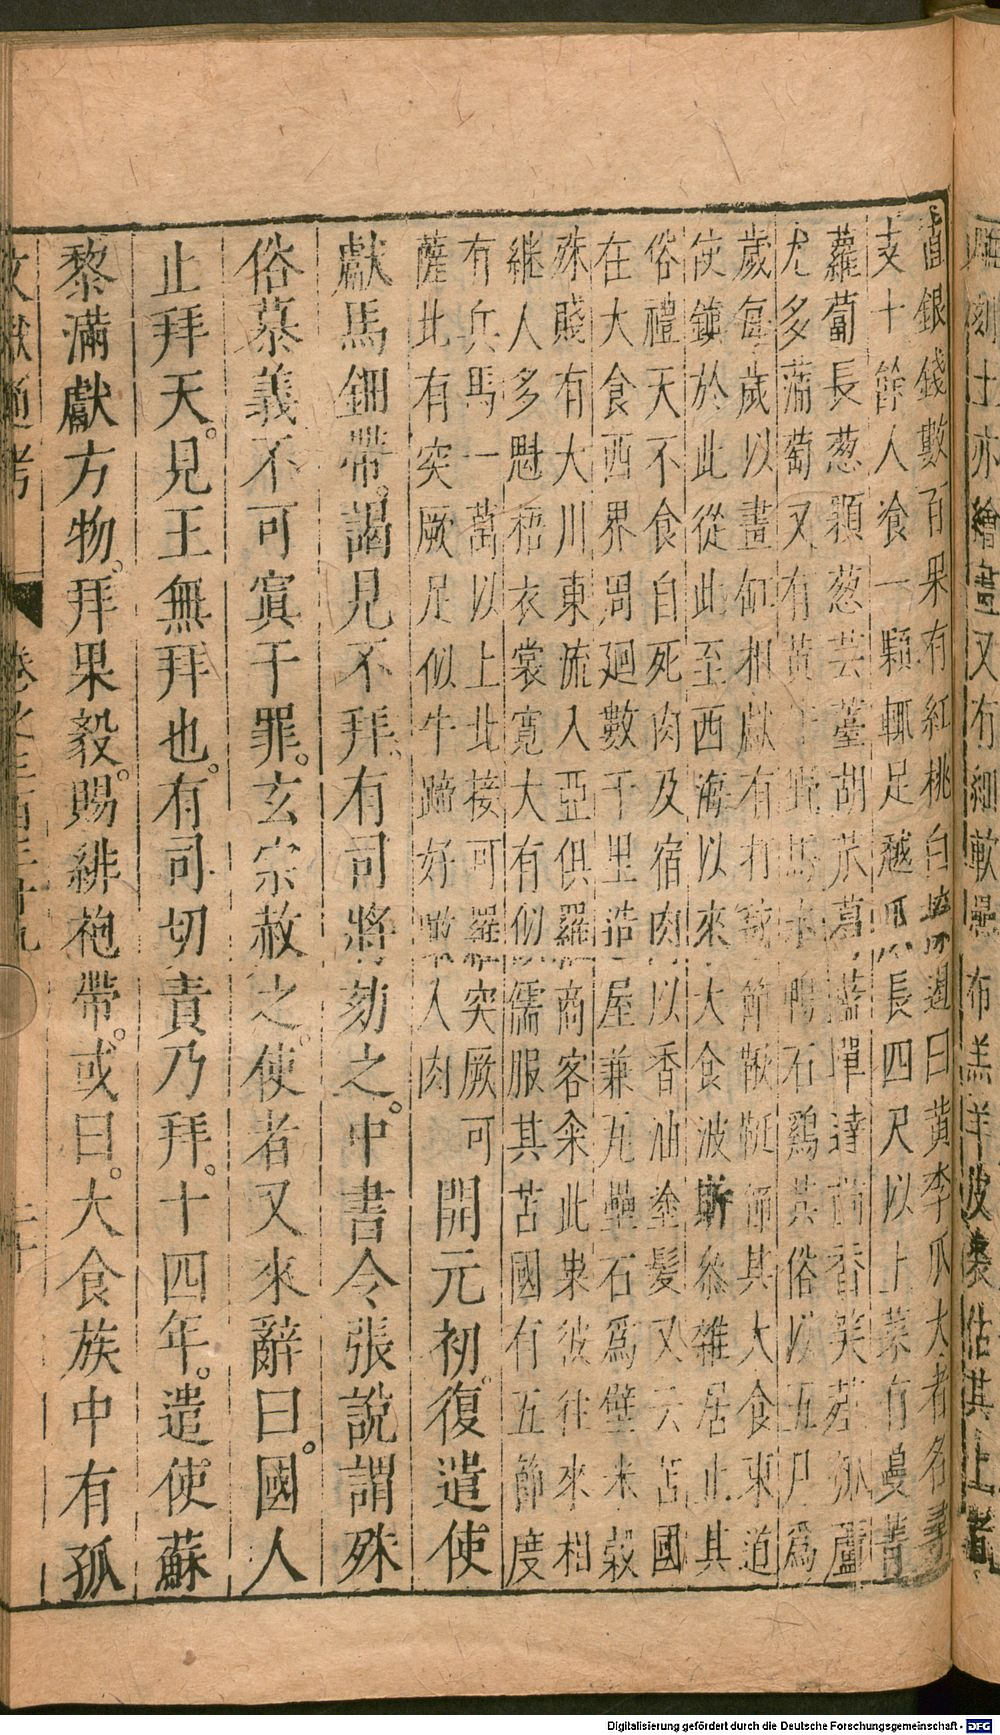 雕刻土亦繪畫又有細軟疊布羔羊皮裘估其上者
直銀錢數百果有紅桃白 遏曰黃李瓜大者名尋
支十餘人飡一顆輒足越瓜長四尺以上菜有蔓菁
蘿蔔長葱顆葱芸薹胡芹葛藍單達茴香茇薤瓠蘆
尤多蒲萄又有黃牛野馬水鴨石鷄其俗以五尸爲
歲每歲以畫缸相獻有打毬節鞦韆節其大食東道
使鎮於此從此至西海以來大食波斯叅雜居止其
俗禮天不食自死肉及宿肉以香油塗髮又云苫國
在大食西界周廻數千里造屋兼瓦壘石爲壁米穀
殊賤有大川東流入亞俱羅商客籴此粜彼往來相
継人多魁梧衣裳寬大有似儒服其苫國有五節度
有兵馬一萬以上北接可羅突厥可
薩北有突厥足似牛蹄好噉人肉
開元初。復遣使
獻馬鈿帶。謁見不拜。有司將劾之。中書令張說謂殊
俗慕義不可寘于罪。玄宗赦之。使者又來辭曰。國人
止拜天。見王無拜也。有司切責乃拜。十四年。遣使蘇
黎滿獻方物。拜果毅。賜緋袍帶。或曰。大食族中有孤
文獻通考 卷之三百三十九 二十
Digitalisierung gefördert durch die Deutsche Forschungsgemeinschaft - DFG